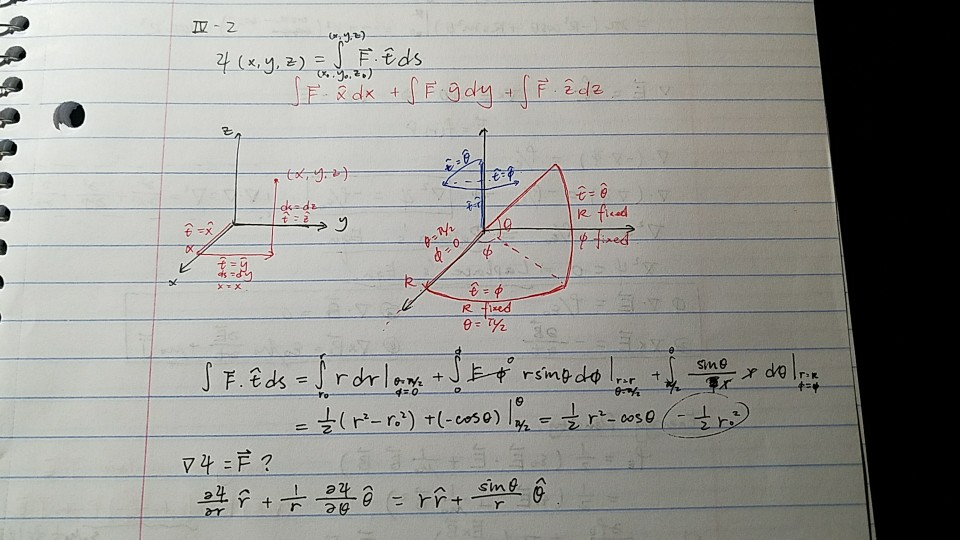 IV-2
ψ(x,y,z) = ∫_{(x₀,y₀,z₀)}^{(x,y,z)} F⃗·t̂ ds
∫F⃗·x̂dx + ∫F⃗·ŷdy + ∫F⃗·ẑdz
z
(x,y,z)
ds=dz
t̂=ẑ
y
t̂=x̂
x
t̂=ŷ
ds=dy
x=x
x
t̂=θ̂
t̂=φ̂
t̂=r̂
θ
φ
θ=π/2
φ=0
R
t̂=θ̂
R fixed
φ fixed
t̂=φ
R fixed
θ=π/2
∫F⃗·t̂ds = ∫_{r₀}^{r} r dr|_{θ=π/2, φ=0} + ∫_{0}^{φ} F·φ⁰ r sinθ dφ|_{r=r, θ=π/2} + ∫_{π/2}^{θ} sinθ/r r dθ|_{r=r, φ=φ}
= ½(r²-r₀²) + (-cosθ)|_{π/2}^{θ} = ½ r² - cosθ - ½ r₀²
∇ψ = F⃗ ?
∂ψ/∂r r̂ + 1/r ∂ψ/∂θ θ̂ = r r̂ + sinθ/r θ̂.